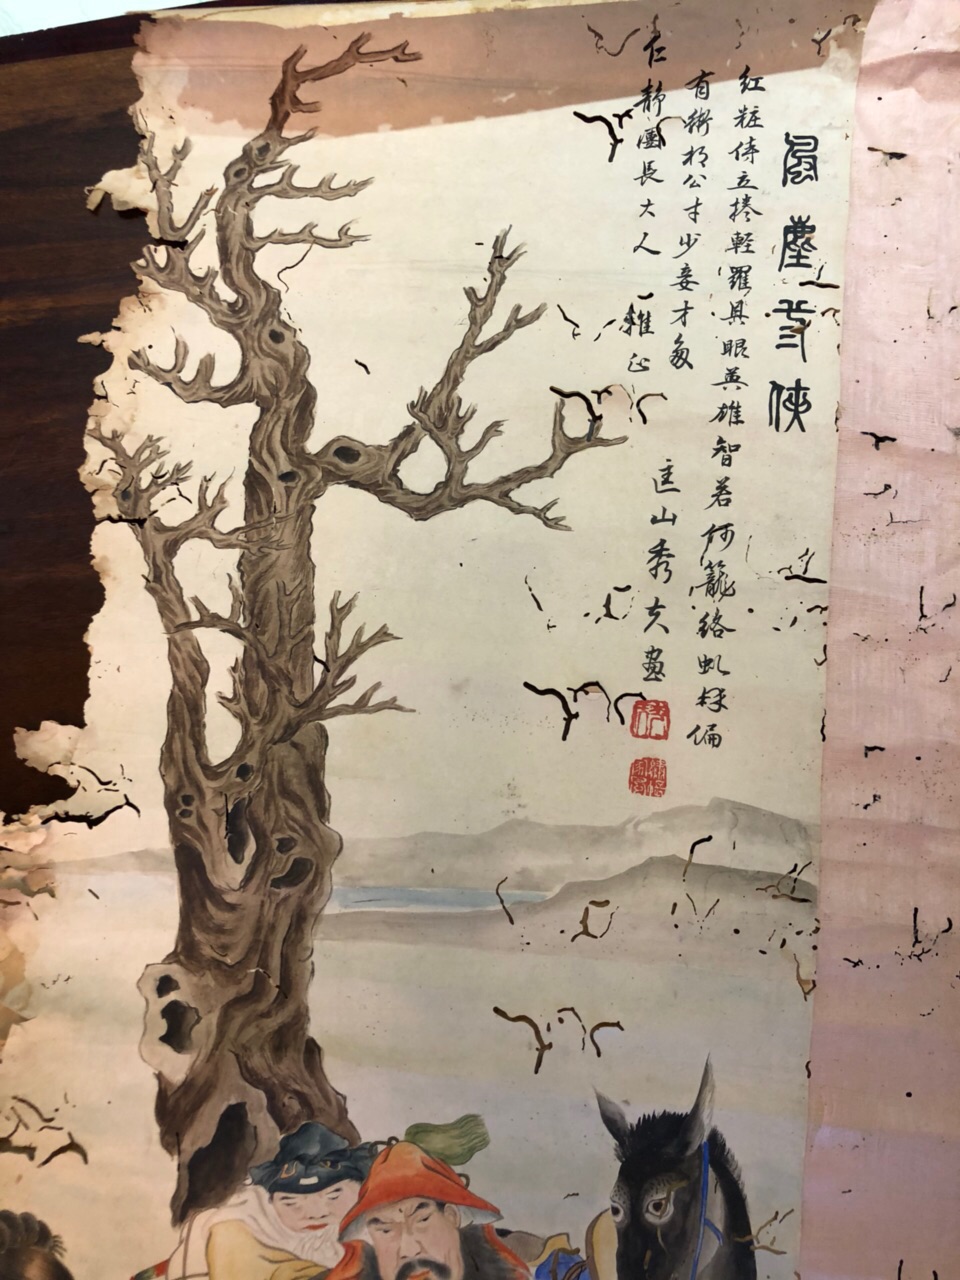 風塵三俠
紅粧侍立捲輕羅具眼英雄智若何籠絡虬髯偏
有術楊公才少妾才多
仁靜園長大人 雅正
匡山秀夫畫